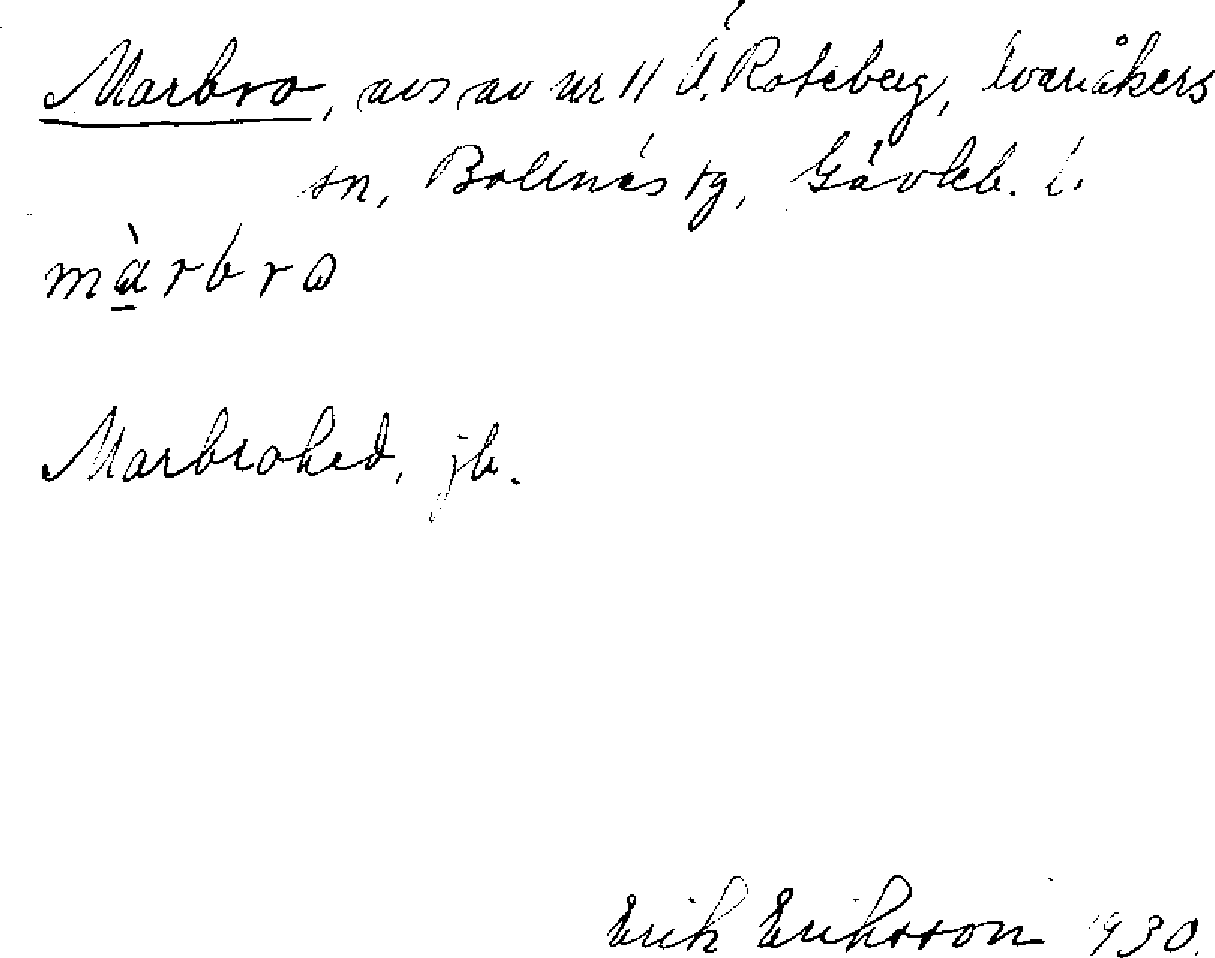 Marbro, avs av nr 11 Ö. Roteberg, Svanåkers
sn, Bollnäs tg, Gävleb. l.
màrbro
Marbrohed, jb.
Erik Eriksson 1930.